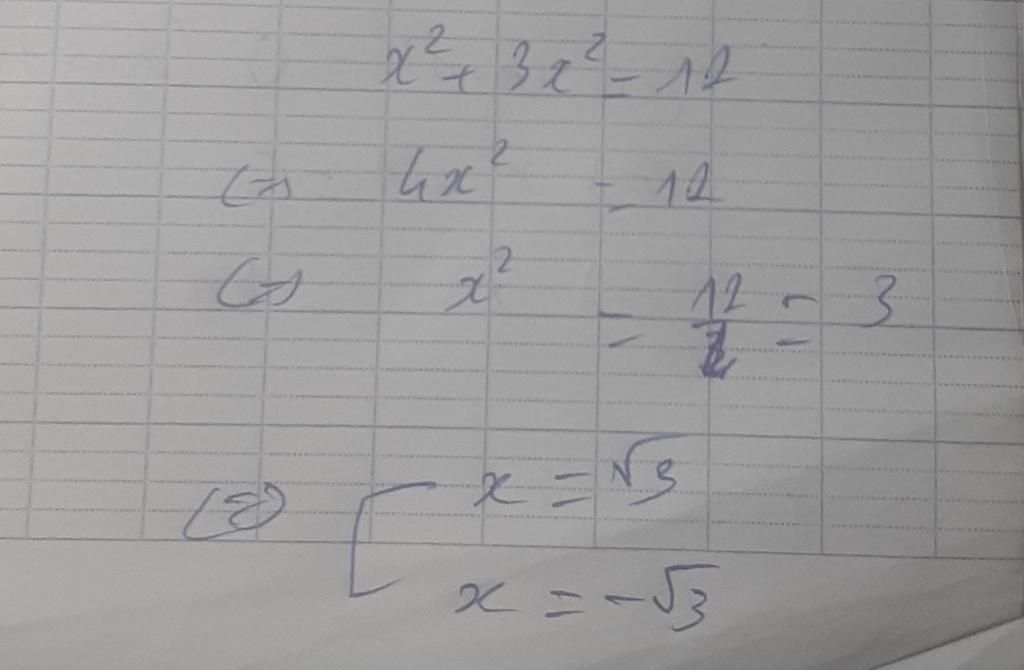 x² + 3x² = 12
<=> 4x² = 12
<=> x² = 12/4 = 3
<=> [ x = √3
x = -√3